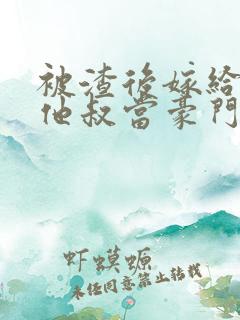 被渣後嫁給
他叔當豪門
虾蟆螈
未经同意禁止转载